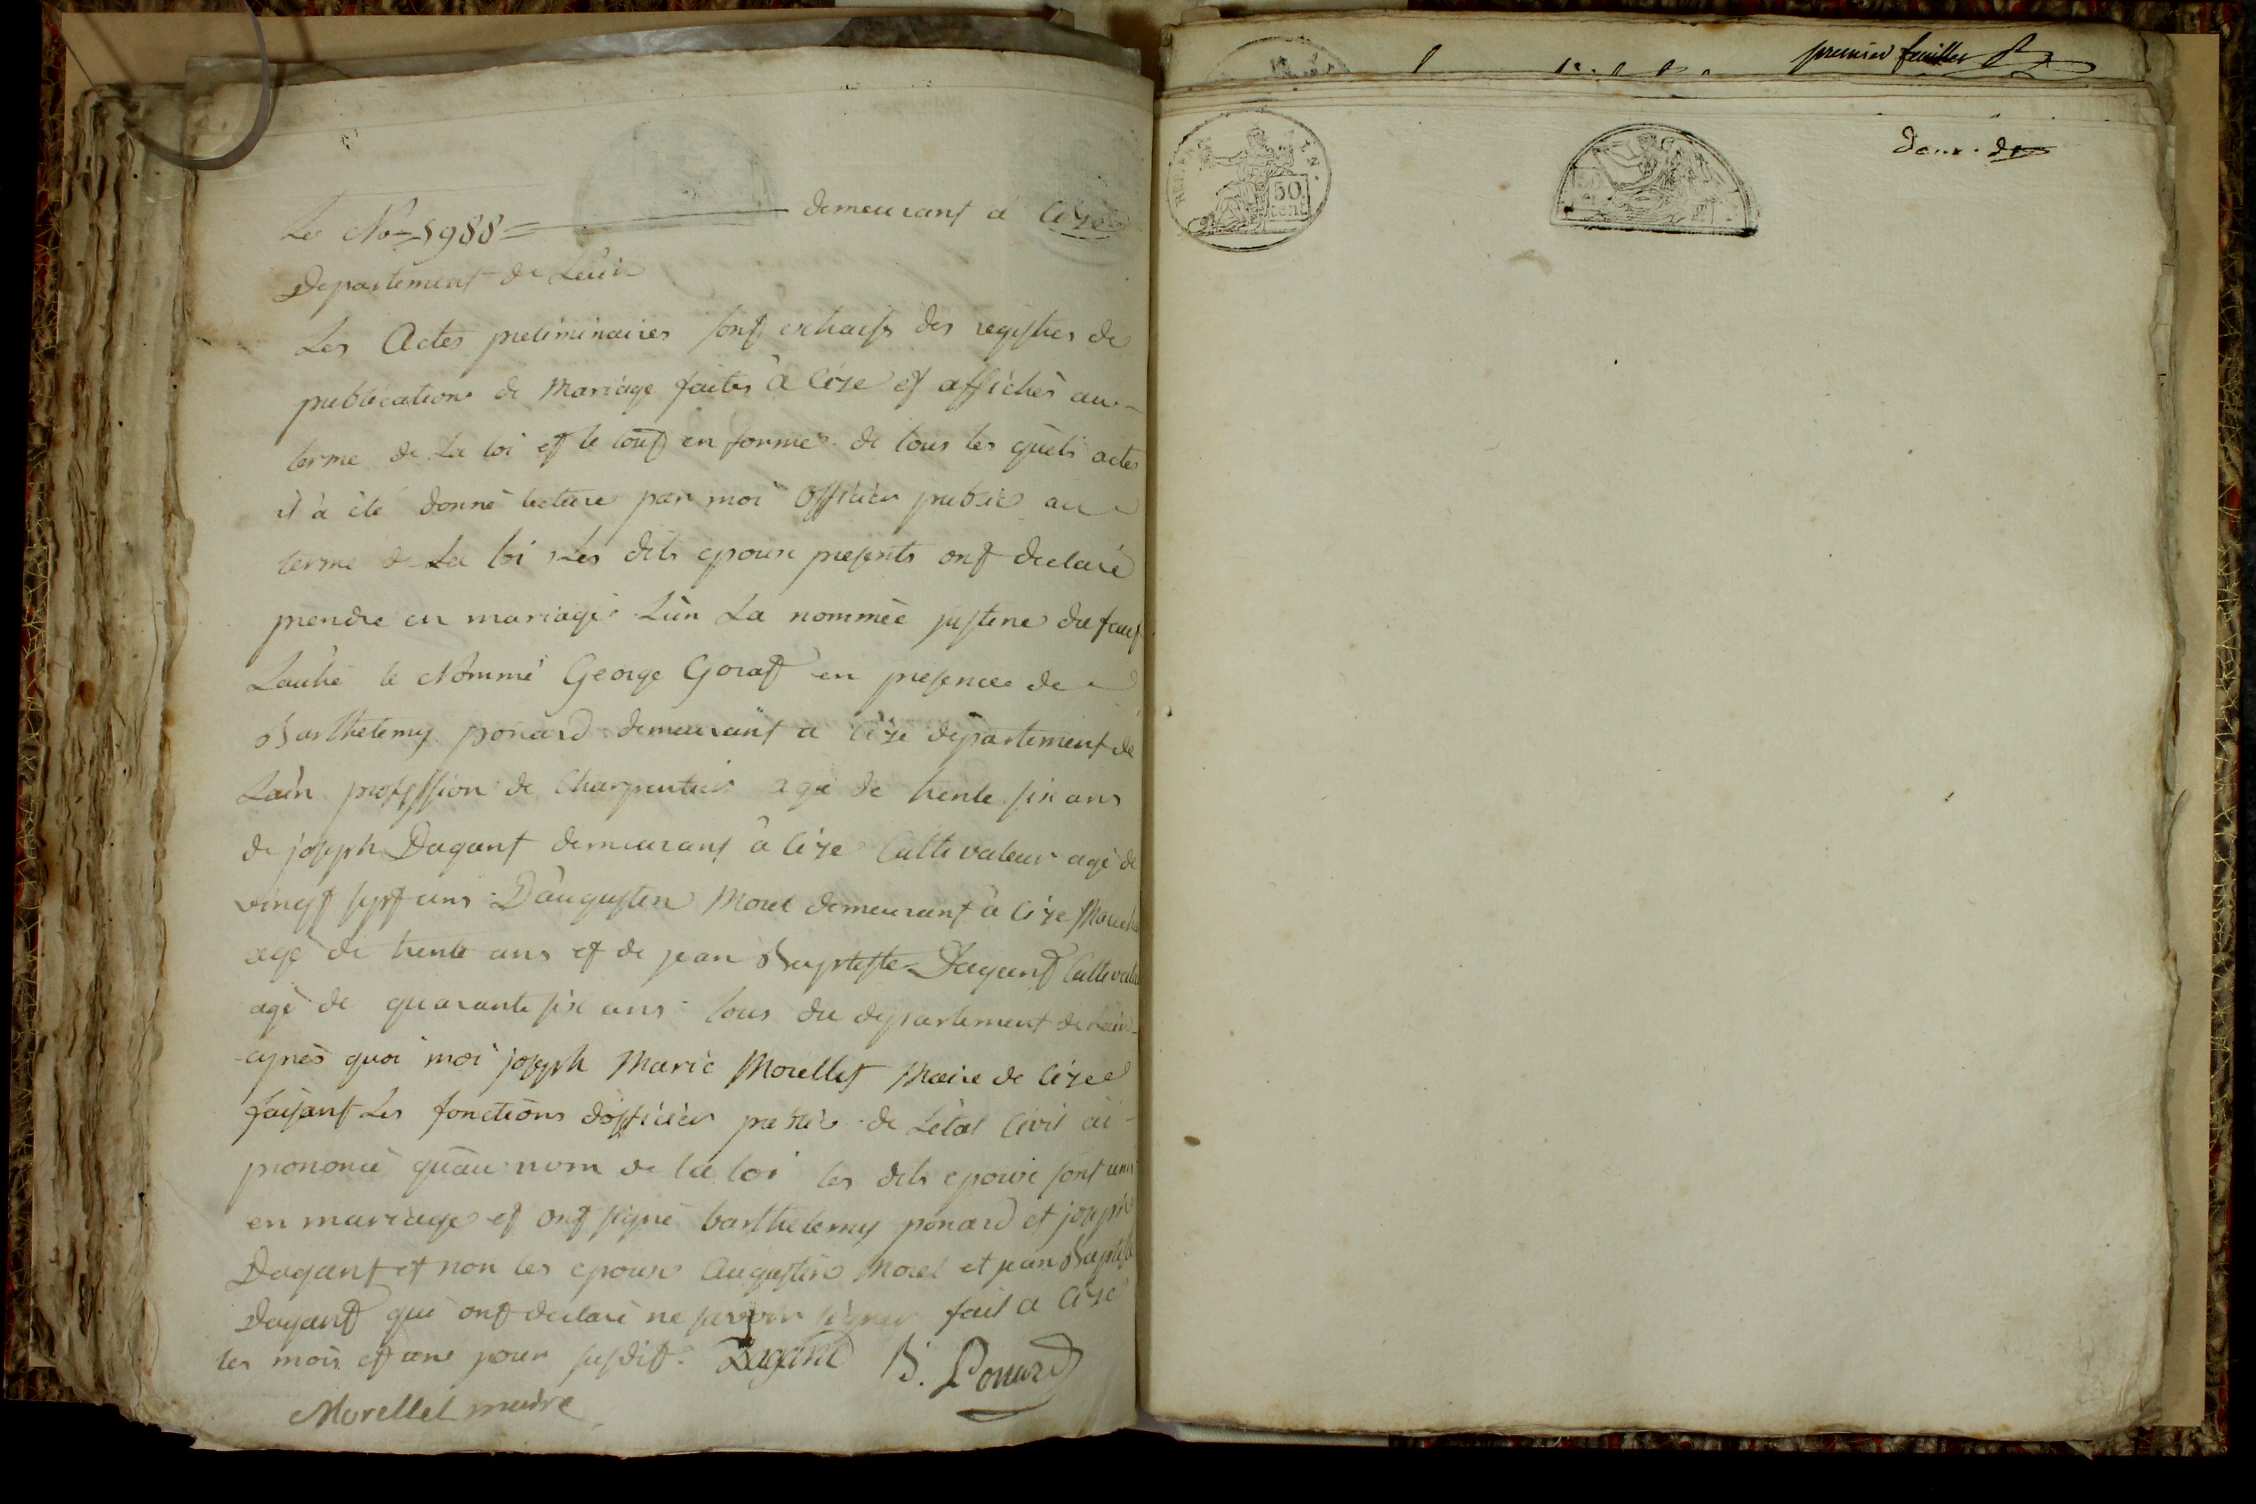 Le No 5988 = demeurant à Cize
Departement de Laïn
Les Actes preliminaires sont extraits des registres de
publications de Mariage faites à Cize et affichés au
terme de La loi et le tout en forme de tous les quels actes
il à été donné lecture par moi officier public au
terme de La loi Les dits epoux presents ont declaré
prendre en mariage Lùn La nommée justine dufour
Lautre le Nommé George Goraf en presence de
Barthelemy ponard demeurant a Cize département de
Laïn profession de Charpentier agé de trente six ans
de joseph Dagant demeurant à Cize Cultivateur agé de
vingt sept ans D'augustin Morel demeurant à Cize
agé de trente ans et de jean Baptiste Dagant Cultivateur
agé de quarante six ans tous du département de Laïn
après quoi moi joseph Marie Morellet Maire de Cize
faisant Les fonctions d'officier public de L'état Civil ai
prononcé qu'au nom de la loi les dits epoux sont unis
en mariage et ont signé barthelemy ponard et joseph
Dagant et non les epoux Augustin Morel et jean Baptiste
Dagant qui ont declaré ne savoir signer fait a Cize
les mois et an pour susdit. Dagant B. Ponard
Morellet maire
premier feuillet
REP. FRA
50
cent
deux